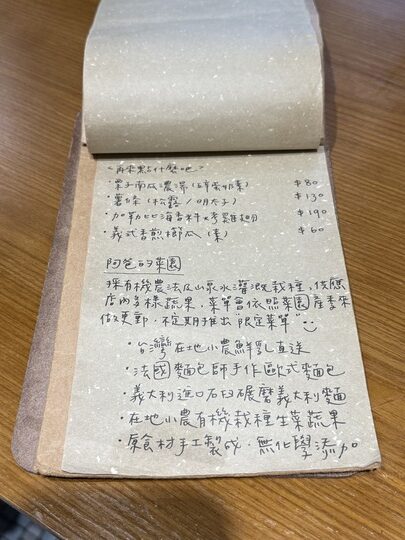 ~再來點什麼吧~
·栗子南瓜濃湯(蛋奶素) $80
·薯條(松露/明太子) $130
·加勒比海香料烤雞翅 $190
·義式香煎櫛瓜(素) $60
阿爸的菜園
採有機農法及山泉水灌溉栽種,供應
店內多樣蔬果,菜單會依照菜園產季來
做更動,不定期推出"限定菜單"
·台灣在地小農鮮乳直送
·法國麵包師手作歐式麵包
·義大利進口石臼碾磨義大利麵
·在地小農有機栽種生菜蔬果
·原食材手工製成,無化學添加